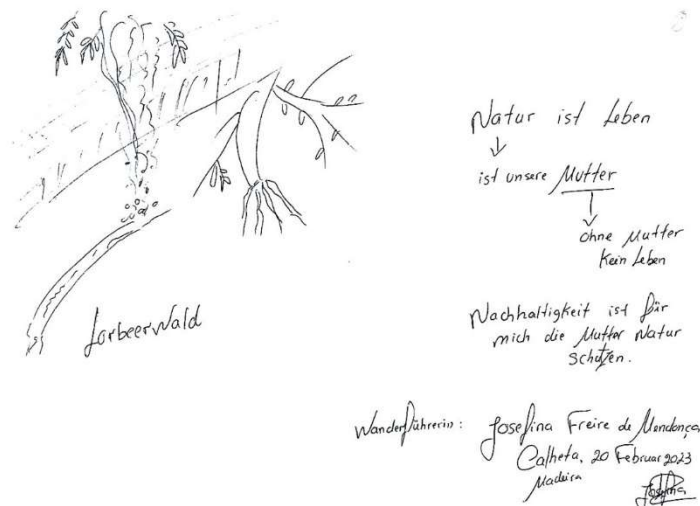 Lorbeerwald
Natur ist Leben
ist unsere Mutter
ohne Mutter
kein Leben
Nachhaltigkeit ist für
mich die Mutter Natur
schützen.
Wanderführerin: Josefina Freire de Mendonça
Calheta, 20 Februar 2023
Madeira
Josefina